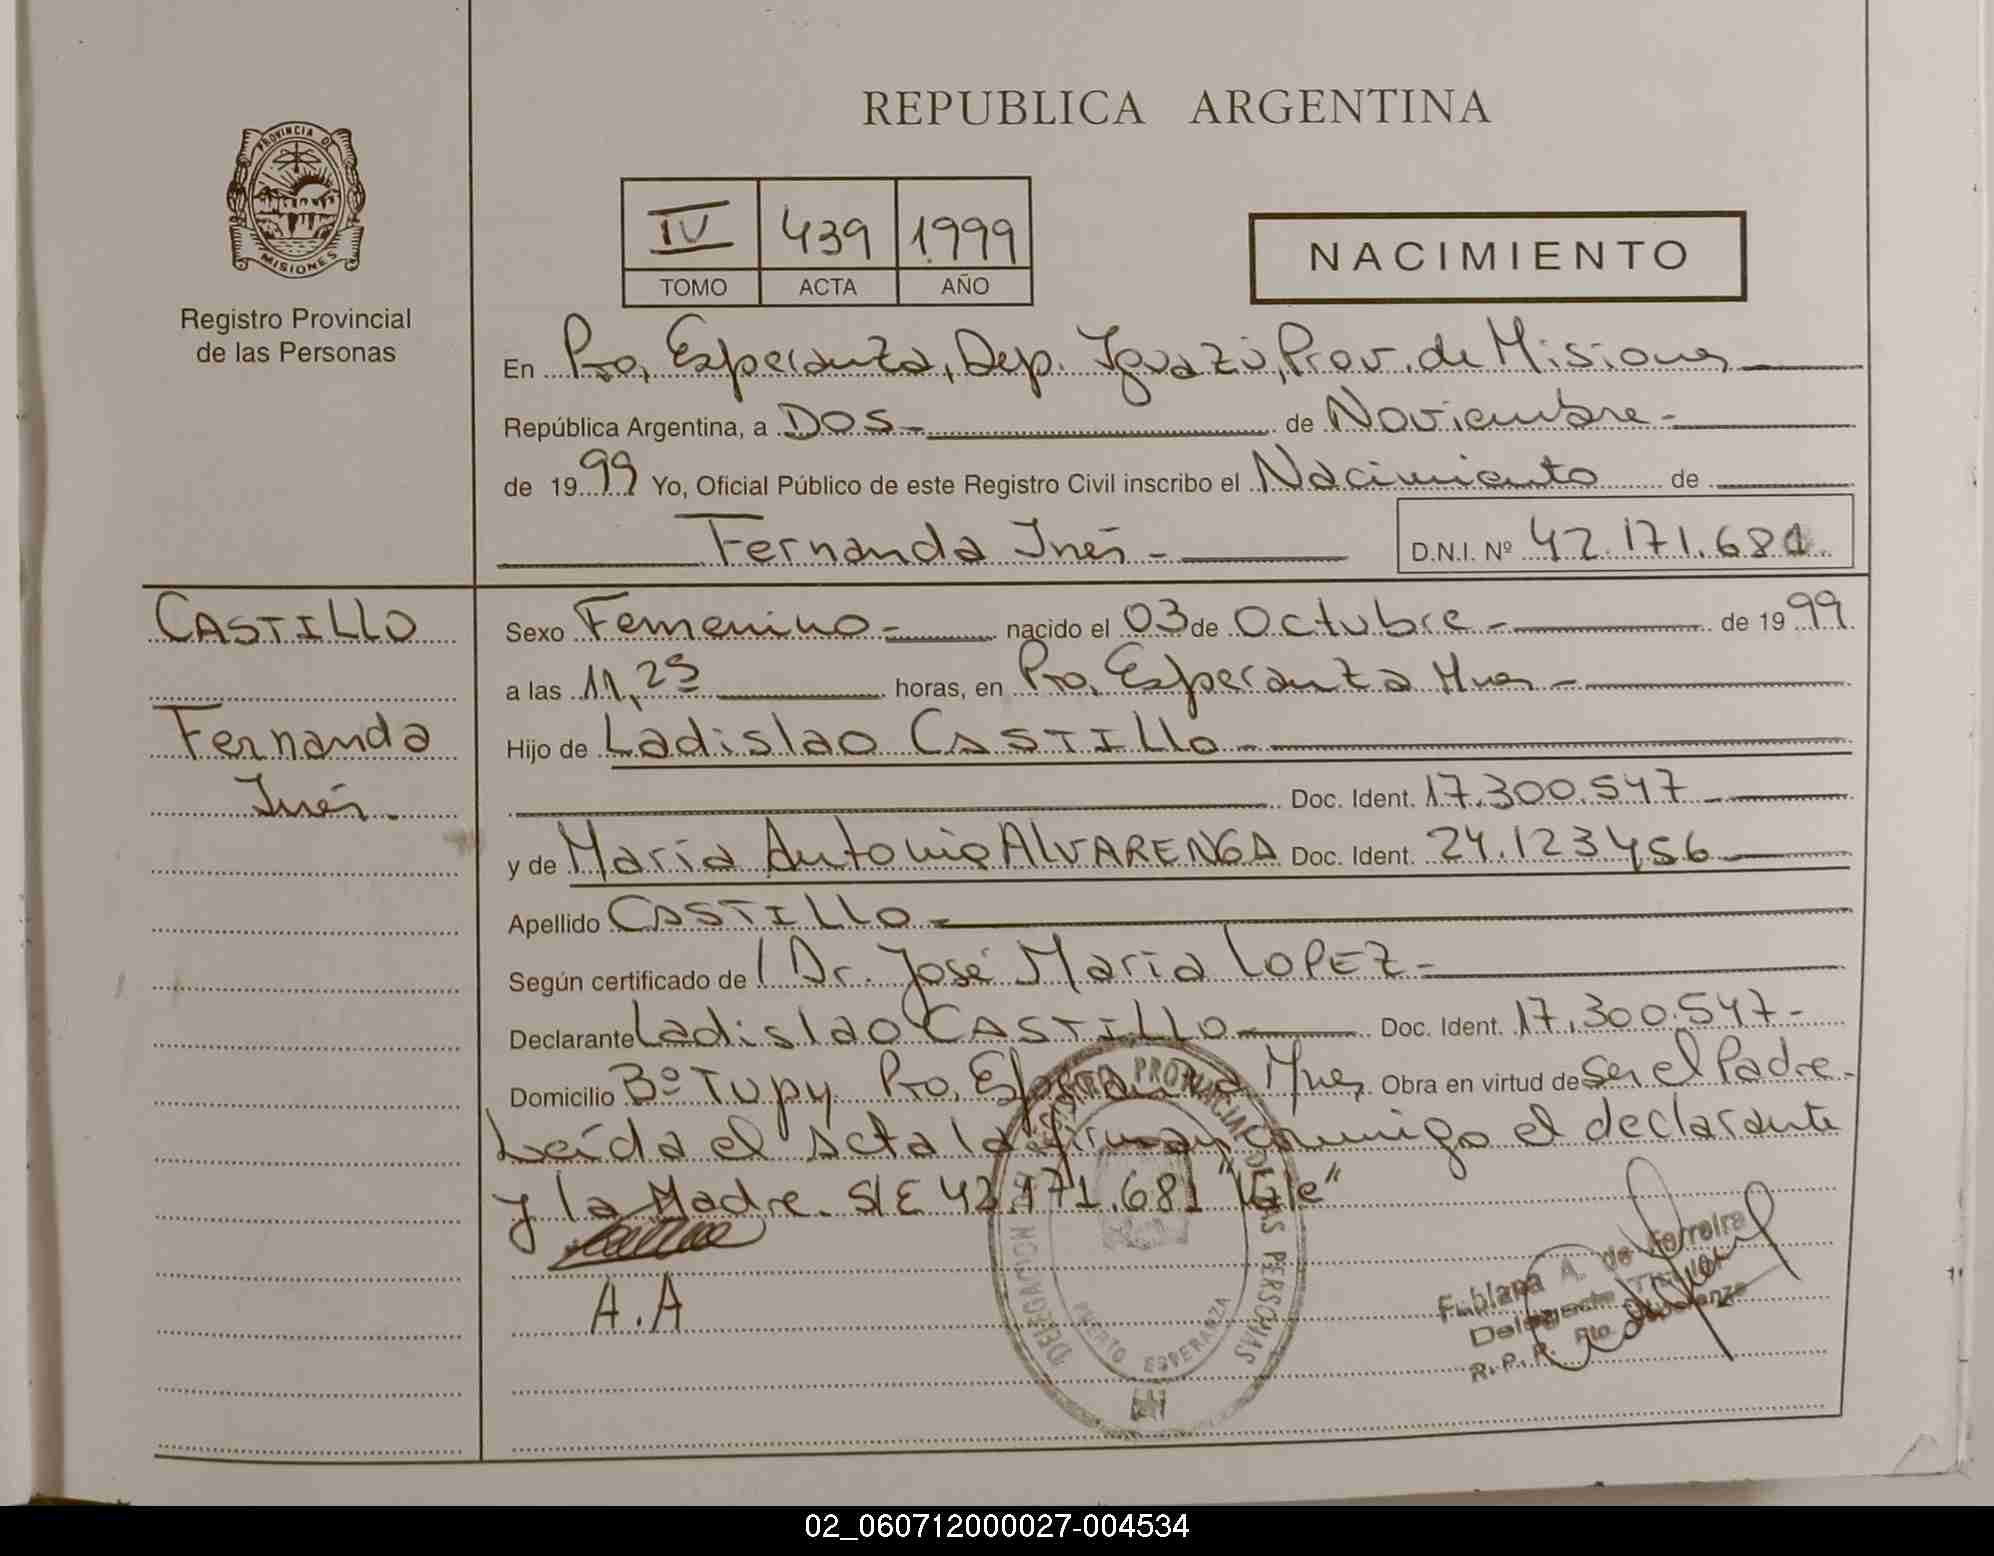 REPUBLICA ARGENTINA
PROVINCIA DE
MISIONES
Registro Provincial
de las Personas
IV 439 1999
TOMO ACTA AÑO
NACIMIENTO
En Pto. Esperanza, Dep. Iguazú, Prov. de Misiones
República Argentina, a DOS- de Noviembre-
de 1999 Yo, Oficial Público de este Registro Civil inscribo el Nacimiento de
Fernanda Inés-
D.N.I. Nº 42.171.681
CASTILLO
Fernanda
Inés.-
Sexo Femenino- nacido el 03 de Octubre- de 1999
a las 11,25 horas, en Pto. Esperanza Mnes-
Hijo de Ladislao CASTILLO-
Doc. Ident. 17.300.547-
y de María Antonia ALVARENGA Doc. Ident. 24.123456-
Apellido CASTILLO-
Según certificado de Dr. José María LOPEZ-
Declarante Ladislao CASTILLO- Doc. Ident. 17.300.547-
Domicilio Bº Tupy Pto. Esperanza Mnes Obra en virtud de Ser el Padre-
Leída el acta la firman conmigo el declarante
y la Madre. S/E 42.171.681 "Vale"
A.A
REGISTRO PROVINCIAL DE LAS PERSONAS
DELEGACION
PUERTO ESPERANZA
Fabiana A. de Ferreira
Delegada Titular
R.P.P. Pto. Esperanza
02_060712000027-004534